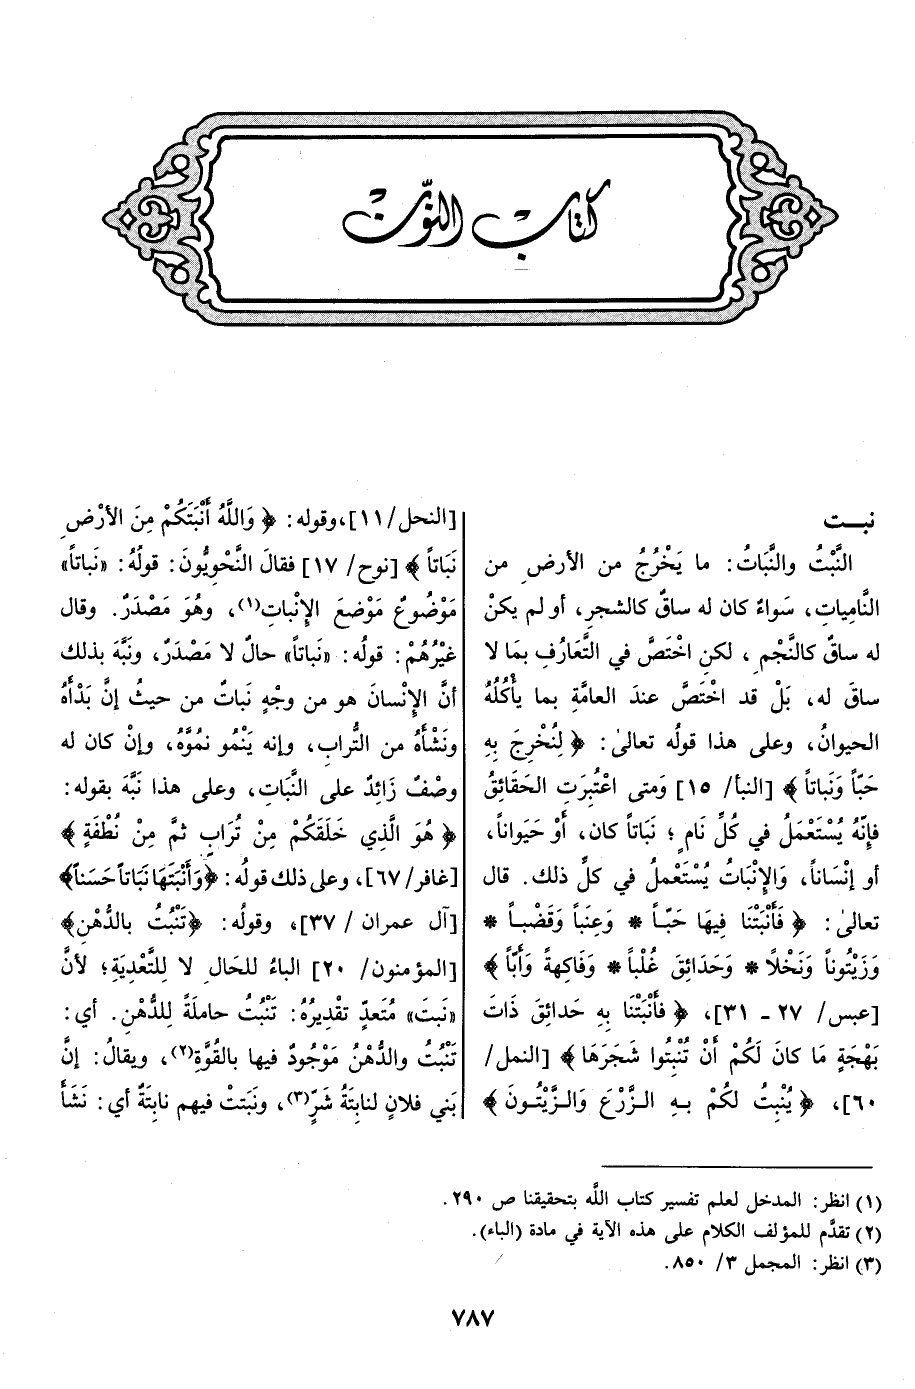 كتاب النون
نبت
النَّبْتُ والنَّبَاتُ: ما يَخْرُجُ من الأرضِ من
النَّامِياتِ، سَواءٌ كان له ساقٌ كالشجرِ، أو لم يكنْ
له ساقٌ كالنَّجْمِ، لكنِ اخْتَصَّ في التَّعَارُفِ بمَا لا
ساقَ له، بَلْ قد اخْتَصَّ عندَ العامَّةِ بما يأكُلُهُ
الحيوانُ، وعلى هذا قولُه تعالىٰ: ﴿لِنُخْرِجَ بِهِ
حَبّاً وَنَباتاً﴾ [النبأ/ ١٥] وَمَتى اعْتُبِرَتِ الحَقَائِقُ
فإنّهُ يُسْتَعْمَلُ في كُلِّ نَامٍ؛ نَبَاتاً كان، أَوْ حَيَواناً،
أو إنْسَاناً، وَالإِنْبَاتُ يُسْتَعْملُ في كلِّ ذلك. قال
تعالىٰ: ﴿فَأَنْبَتْنَا فِيهَا حَبّاً * وَعِنَباً وَقَضْباً *
وَزَيْتُوناً وَنَخْلًا * وَحَدَائِقَ غُلْباً * وَفَاكِهةً وَأَبّاً﴾
[عبس/ ٢٧ - ٣١]، ﴿فأَنْبَتْنَا بِهِ حَدائِقَ ذَاتَ
بَهْجَةٍ مَا كانَ لَكُمْ أَنْ تُنْبِتُوا شَجَرَهَا﴾ [النمل/
٦٠]، ﴿يُنْبِتُ لكُمْ بهِ الزَّرْعَ وَالزَّيْتُونَ﴾
[النحل/ ١١]، وقوله: ﴿وَاللَّهُ أَنْبَتَكُمْ مِنَ الأَرْضِ
نَبَاتاً﴾ [نوح/ ١٧] فقالَ النَّحْويُّونَ: قولُهُ: «نَباتاً»
مَوْضُوعٌ مَوْضعَ الإِنْباتِ(١)، وهُوَ مَصْدَرٌ. وقال
غيْرُهُمْ: قولُه: «نَباتاً» حالٌ لا مَصْدَرٌ، ونَبَّهَ بذلك
أنَّ الإِنْسانَ هو من وجْهٍ نَباتٌ من حيثُ إنَّ بَدْأَهُ
ونَشْأَهُ من التُّرابِ، وإنه يَنْمُو نمُوَّهُ، وإنْ كان له
وصْفٌ زَائِدٌ على النَّبَاتِ، وعلى هذا نَبَّهَ بقوله:
﴿هُوَ الَّذِي خَلَقَكُمْ مِنْ تُرَابٍ ثمَّ مِنْ نُطْفَةٍ﴾
[غافر/٦٧]، وعلى ذلك قولُه: ﴿وَأَنْبَتَهَا نَبَاتاً حَسَناً﴾
[آل عمران /٣٧]، وقولُه: ﴿تَنْبُتُ بالدُّهْنِ﴾
[المؤمنون/ ٢٠] الباءُ للحَالِ لا لِلتَّعْدِيَةِ؛ لأنَّ
«نَبتَ» مُتَعدٍّ تقْدِيرُهُ: تَنْبُتُ حاملَةً لِلدُّهْنِ. أي:
تَنْبُتُ والدُّهْنُ مَوْجُودٌ فيها بالقُوَّةِ(٢)، ويقالُ: إنَّ
بَني فلانٍ لنابِتَةُ شَرٍّ(٣)، ونَبَتتْ فيهم نابِتَةٌ أي: نَشَأَ
(١) انظر: المدخل لعلم تفسير كتاب اللَّه بتحقيقنا ص ٢٩٠.
(٢) تقدَّم للمؤلف الكلام على هذه الآية في مادة (الباء).
(٣) انظر: المجمل ٣/ ٨٥٠.
٧٨٧